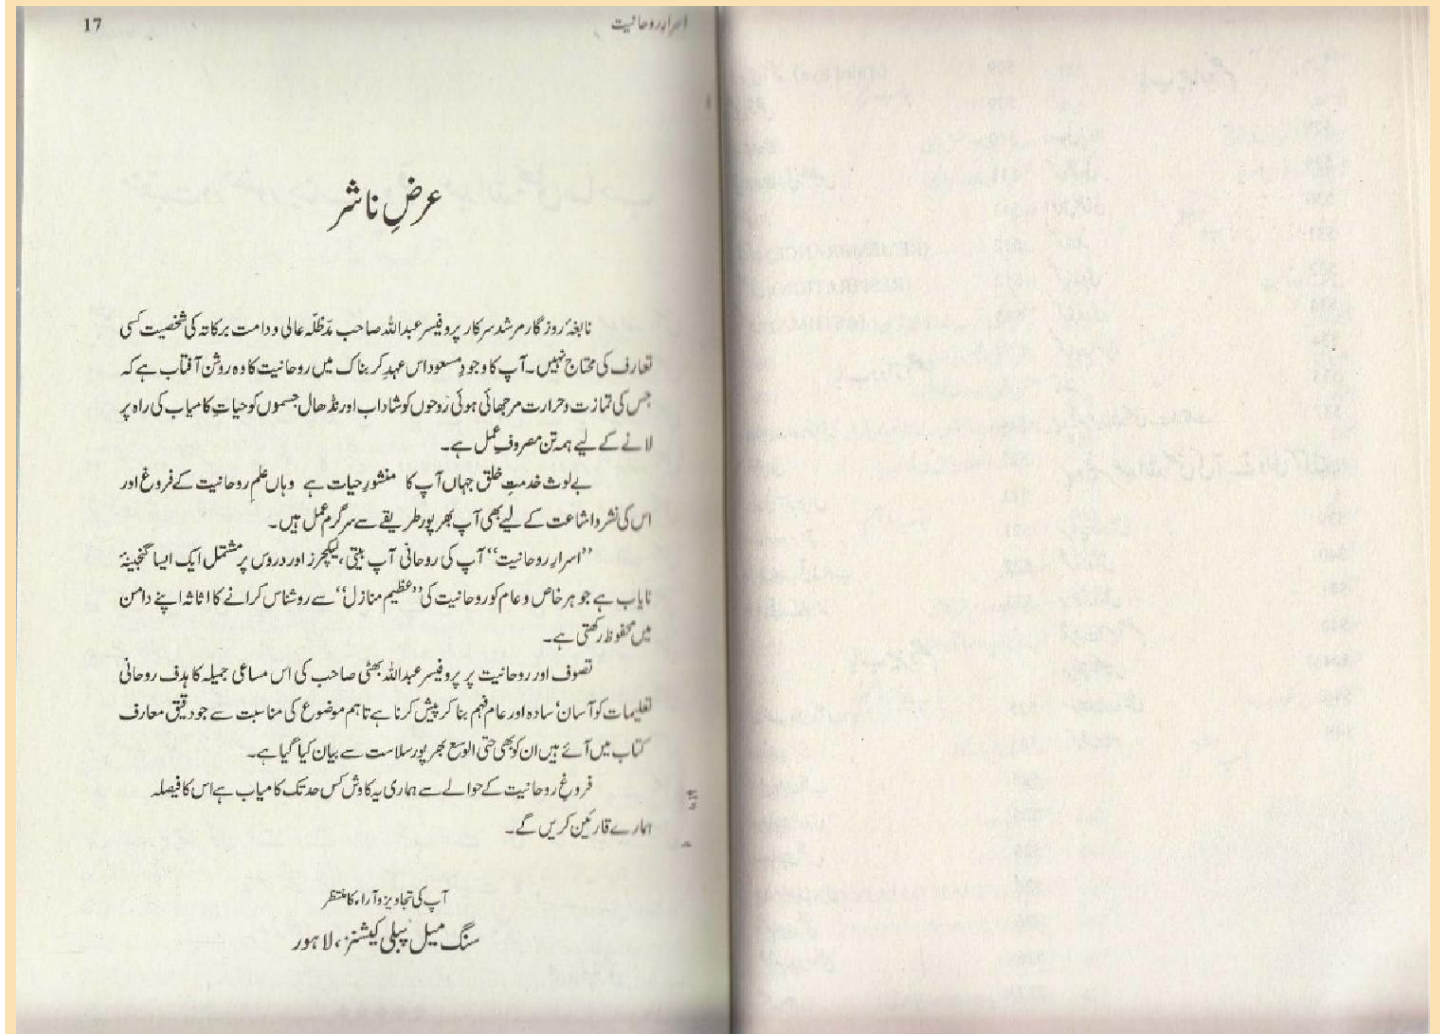 اسرارِ روحانیت
17
عرضِ ناشر
نابغۂ روزگار مرشد سرکار پروفیسر عبداللہ صاحب مدّظلّہ عالی و دامت برکاتہ کی شخصیت کسی
تعارف کی محتاج نہیں۔ آپ کا وجودِ مسعود اس عہدِ کربناک میں روحانیت کا وہ روشن آفتاب ہے کہ
جس کی تمازت و حرارت مرجھائی ہوئی رُوحوں کو شاداب اور نڈھال جسموں کو حیاتِ کامیاب کی راہ پر
لانے کے لیے ہمہ تن مصروفِ عمل ہے۔
بے لوث خدمتِ خلق جہاں آپ کا منشورِ حیات ہے وہاں علمِ روحانیت کے فروغ اور
اس کی نشر و اشاعت کے لیے بھی آپ بھرپور طریقے سے سرگرم عمل ہیں۔
”اسرارِ روحانیت“ آپ کی روحانی آپ بیتی، لیکچرز اور دروس پر مشتمل ایک ایسا گنجینۂ
نایاب ہے جو ہر خاص و عام کو روحانیت کی ”عظیم منازل“ سے روشناس کرانے کا اثاثہ اپنے دامن
میں محفوظ رکھتی ہے۔
تصوف اور روحانیت پر پروفیسر عبداللہ بھٹی صاحب کی اس مساعیٔ جمیلہ کا ہدف روحانی
تعلیمات کو آسان‘ سادہ اور عام فہم بنا کر پیش کرنا ہے تاہم موضوع کی مناسبت سے جو دقیق معارف
کتاب میں آئے ہیں ان کو بھی حتی الوسع بھرپور سلاست سے بیان کیا گیا ہے۔
فروغِ روحانیت کے حوالے سے ہماری یہ کاوش کس حد تک کامیاب ہے اس کا فیصلہ
ہمارے قارئین کریں گے۔
آپ کی تجاویز و آراء کا منتظر
سنگ میل پبلی کیشنز، لاہور